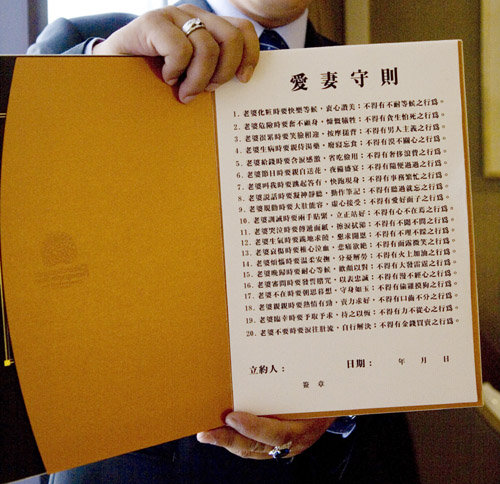 愛妻守則
1. 老婆化粧時要快樂等候，衷心讚美；不得有不耐等候之行為。
2. 老婆危險時要奮不顧身，慷慨犧牲；不得有貪生怕死之行為。
3. 老婆很累時要笑臉相迎，按摩搥背；不得有男人主義之行為。
4. 老婆生病時要親侍湯藥，廢寢忘食；不得有漠不關心之行為。
5. 老婆給錢時要含淚感激，省吃儉用；不得有奢侈浪費之行為。
6. 老婆節日時要親自送花，夜備盛宴；不得有隨便過過之行為。
7. 老婆叫我時要跳起答有，快跑現身；不得有事務繁忙之行為。
8. 老婆說話時要凝神靜聽，勤作筆記；不得有聽過就忘之行為。
9. 老婆規勸時要大肚能容，虛心接受；不得有愛好面子之行為。
10. 老婆訓誡時要兩手貼緊，立正站好；不得有心不在焉之行為。
11. 老婆哭泣時要傳遞面紙，擦淚拭面；不得有不聞不問之行為。
12. 老婆生氣時要跪地求饒，懇求開恩；不得有不理不睬之行為。
13. 老婆哀傷時要椎心泣血，悲痛欲絕；不得有面露微笑之行為。
14. 老婆煩惱時要溫柔安撫，分憂解勞；不得有火上加油之行為。
15. 老婆晚歸時要耐心等候，歡顏以對；不得有大發雷霆之行為。
16. 老婆審問時要發誓詛咒，以表忠誠；不得有漫不經心之行為。
17. 老婆不在時要朝思暮想，守身如玉；不得有偷雞摸狗之行為。
18. 老婆親親時要熱情有勁，賣力求好；不得有口齒不分之行為。
19. 老婆臨幸時要予取予求，持之以恆；不得有力不從心之行為。
20. 老婆不要時要淚往肚流，自行解決；不得有金錢買賣之行為。
立約人： 日期： 年 月 日
簽 章